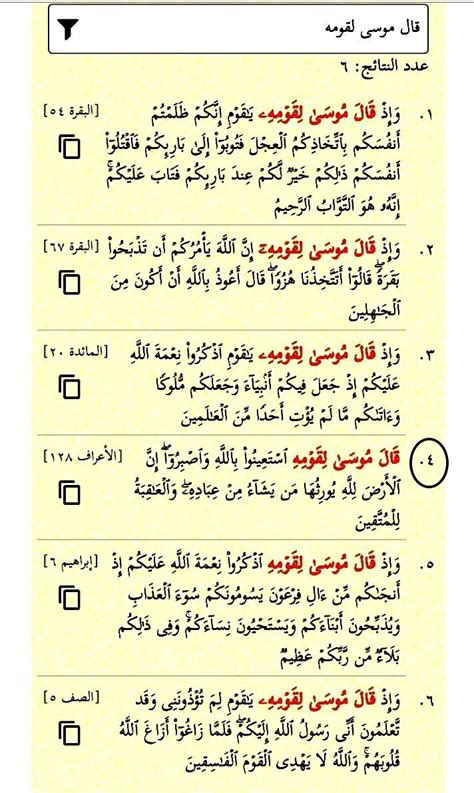 قال موسى لقومه
عدد النتائج: ٦
١. وَإِذۡ قَالَ مُوسَىٰ لِقَوۡمِهِۦ يَٰقَوۡمِ إِنَّكُمۡ ظَلَمۡتُمۡ [البقرة ٥٤]
أَنفُسَكُم بِٱتِّخَاذِكُمُ ٱلۡعِجۡلَ فَتُوبُوٓاْ إِلَىٰ بَارِئِكُمۡ فَٱقۡتُلُوٓاْ
أَنفُسَكُمۡ ذَٰلِكُمۡ خَيۡرٞ لَّكُمۡ عِندَ بَارِئِكُمۡ فَتَابَ عَلَيۡكُمۡۚ
إِنَّهُۥ هُوَ ٱلتَّوَّابُ ٱلرَّحِيمُ
٢. وَإِذۡ قَالَ مُوسَىٰ لِقَوۡمِهِۦٓ إِنَّ ٱللَّهَ يَأۡمُرُكُمۡ أَن تَذۡبَحُواْ [البقرة ٦٧]
بَقَرَةٗۖ قَالُوٓاْ أَتَتَّخِذُنَا هُزُوٗاۖ قَالَ أَعُوذُ بِٱللَّهِ أَنۡ أَكُونَ مِنَ
ٱلۡجَٰهِلِينَ
٣. وَإِذۡ قَالَ مُوسَىٰ لِقَوۡمِهِۦ يَٰقَوۡمِ ٱذۡكُرُواْ نِعۡمَةَ ٱللَّهِ [المائدة ٢٠]
عَلَيۡكُمۡ إِذۡ جَعَلَ فِيكُمۡ أَنۢبِيَآءَ وَجَعَلَكُم مُّلُوكٗا
وَءَاتَىٰكُم مَّا لَمۡ يُؤۡتِ أَحَدٗا مِّنَ ٱلۡعَٰلَمِينَ
٤. قَالَ مُوسَىٰ لِقَوۡمِهِ ٱسۡتَعِينُواْ بِٱللَّهِ وَٱصۡبِرُوٓاْۖ إِنَّ [الأعراف ١٢٨]
ٱلۡأَرۡضَ لِلَّهِ يُورِثُهَا مَن يَشَآءُ مِنۡ عِبَادِهِۦۖ وَٱلۡعَٰقِبَةُ
لِلۡمُتَّقِينَ
٥. وَإِذۡ قَالَ مُوسَىٰ لِقَوۡمِهِ ٱذۡكُرُواْ نِعۡمَةَ ٱللَّهِ عَلَيۡكُمۡ إِذۡ [إبراهيم ٦]
أَنجَىٰكُم مِّنۡ ءَالِ فِرۡعَوۡنَ يَسُومُونَكُمۡ سُوٓءَ ٱلۡعَذَابِ
وَيُذَبِّحُونَ أَبۡنَآءَكُمۡ وَيَسۡتَحۡيُونَ نِسَآءَكُمۡۚ وَفِي ذَٰلِكُم
بَلَآءٞ مِّن رَّبِّكُمۡ عَظِيمٞ
٦. وَإِذۡ قَالَ مُوسَىٰ لِقَوۡمِهِۦ يَٰقَوۡمِ لِمَ تُؤۡذُونَنِي وَقَد [الصف ٥]
تَّعۡلَمُونَ أَنِّي رَسُولُ ٱللَّهِ إِلَيۡكُمۡۖ فَلَمَّا زَاغُوٓاْ أَزَاغَ ٱللَّهُ
قُلُوبَهُمۡۚ وَٱللَّهُ لَا يَهۡدِي ٱلۡقَوۡمَ ٱلۡفَٰسِقِينَ